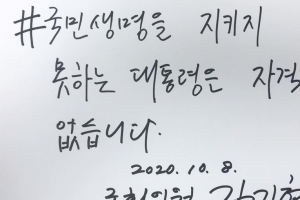 #국민생명을 지키지
못하는 대통령은 자격
없습니다.
2020. 10. 8.
국회의원 김기현